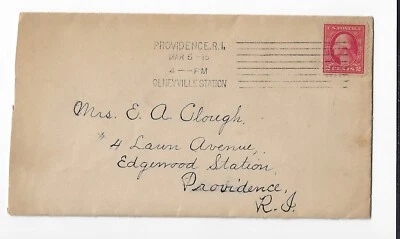 PROVIDENCE, R.I.
MAR 6 - 15
4 - PM
OLNEYVILLE STATION
U.S. POSTAGE
2 CENTS 2
Mrs. E. A. Clough,
#4 Lawn Avenue,
Edgewood Station,
Providence,
R.I.